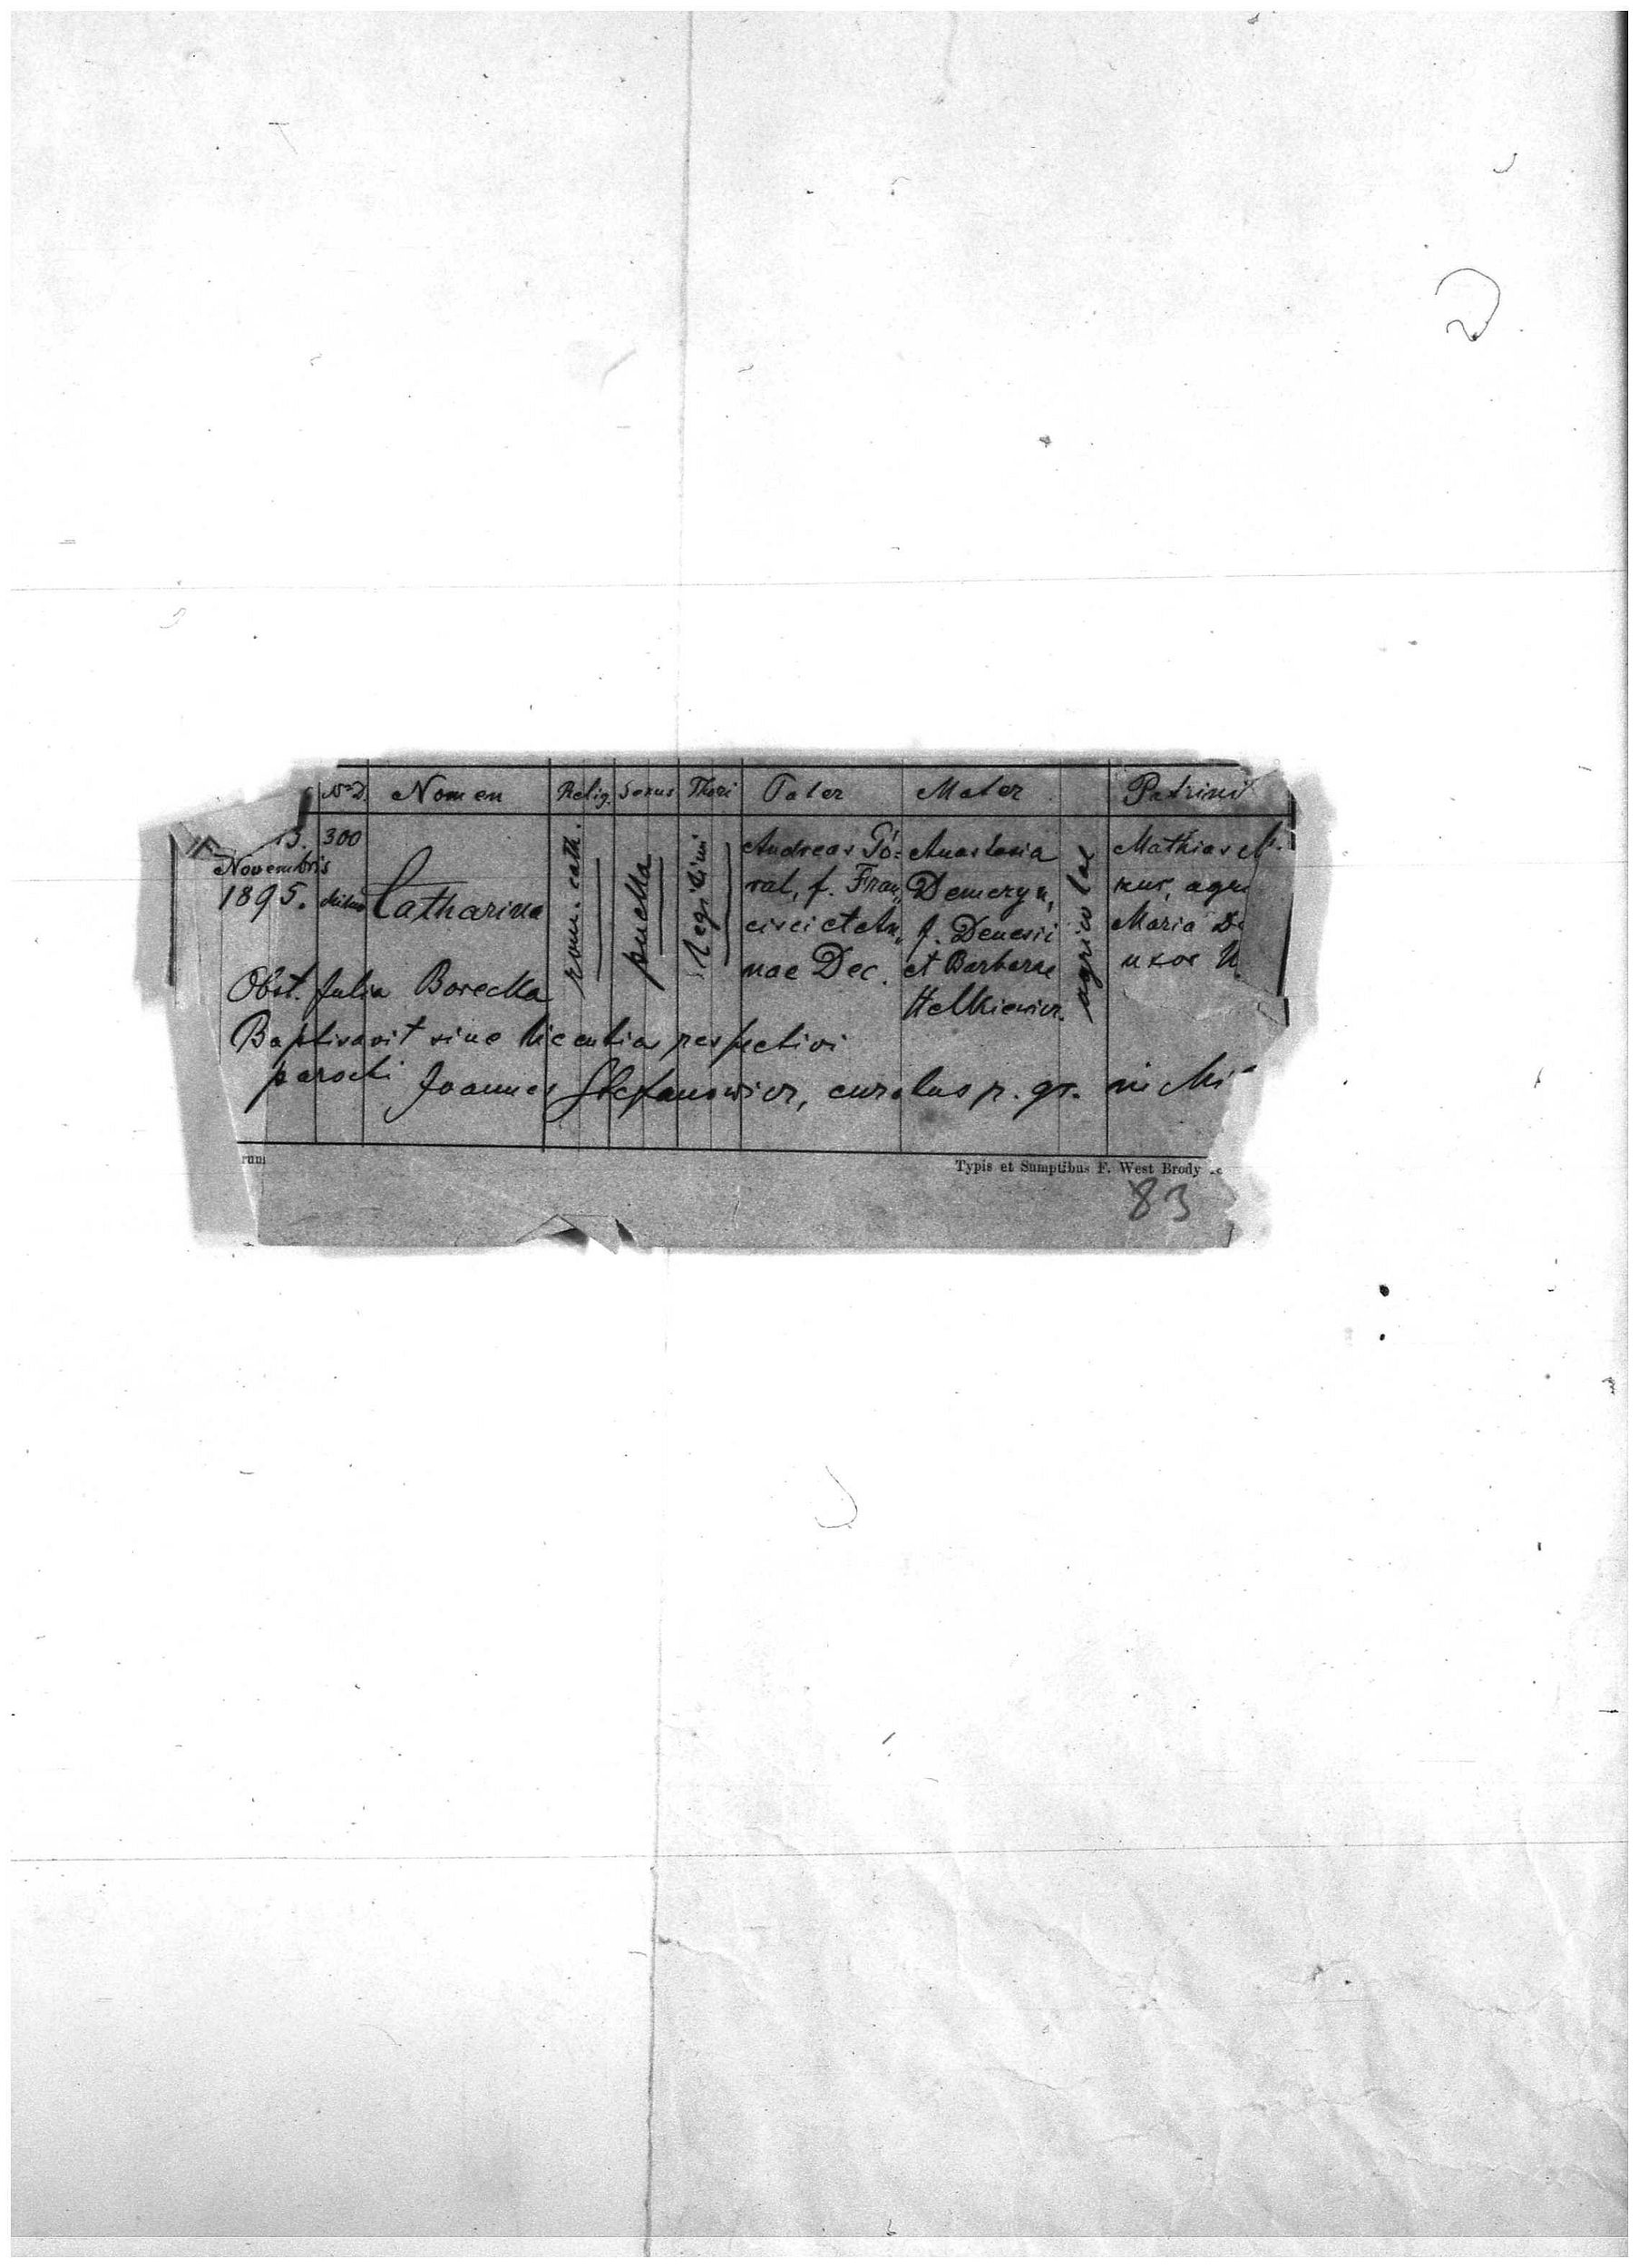 No D. Nomen Relig. Sexus Thori Pater Mater Patrini
13. 300
Novembris
1895.
Catharina
rom. cath.
puella
legitimi
Andreas Gó=
ral, f. Fran„
cisci et An„
nae Dec.
Anastasia
Demczyn,
f. Denesii
et Barbarae
Helkiewicz.
agricolae
Mathias
kus, agri
Maria
uxor
Obst. Julia Borecka
Baptisavit sine licentia respectivi
parochi Joannes Stefanowicz, curatus r. gr. in
rum
Typis et Sumptibus F. West Brody
83